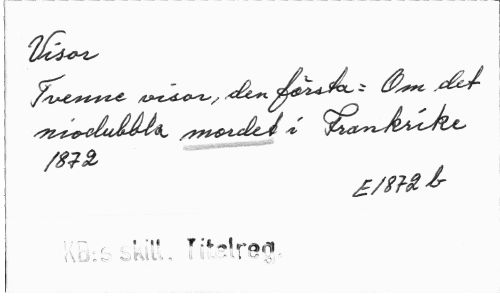 Visor
Tvenne visor, den första: Om det
niodubbla mordet i Frankrike
1872
E1872 b
KB:s skill. Titelreg.